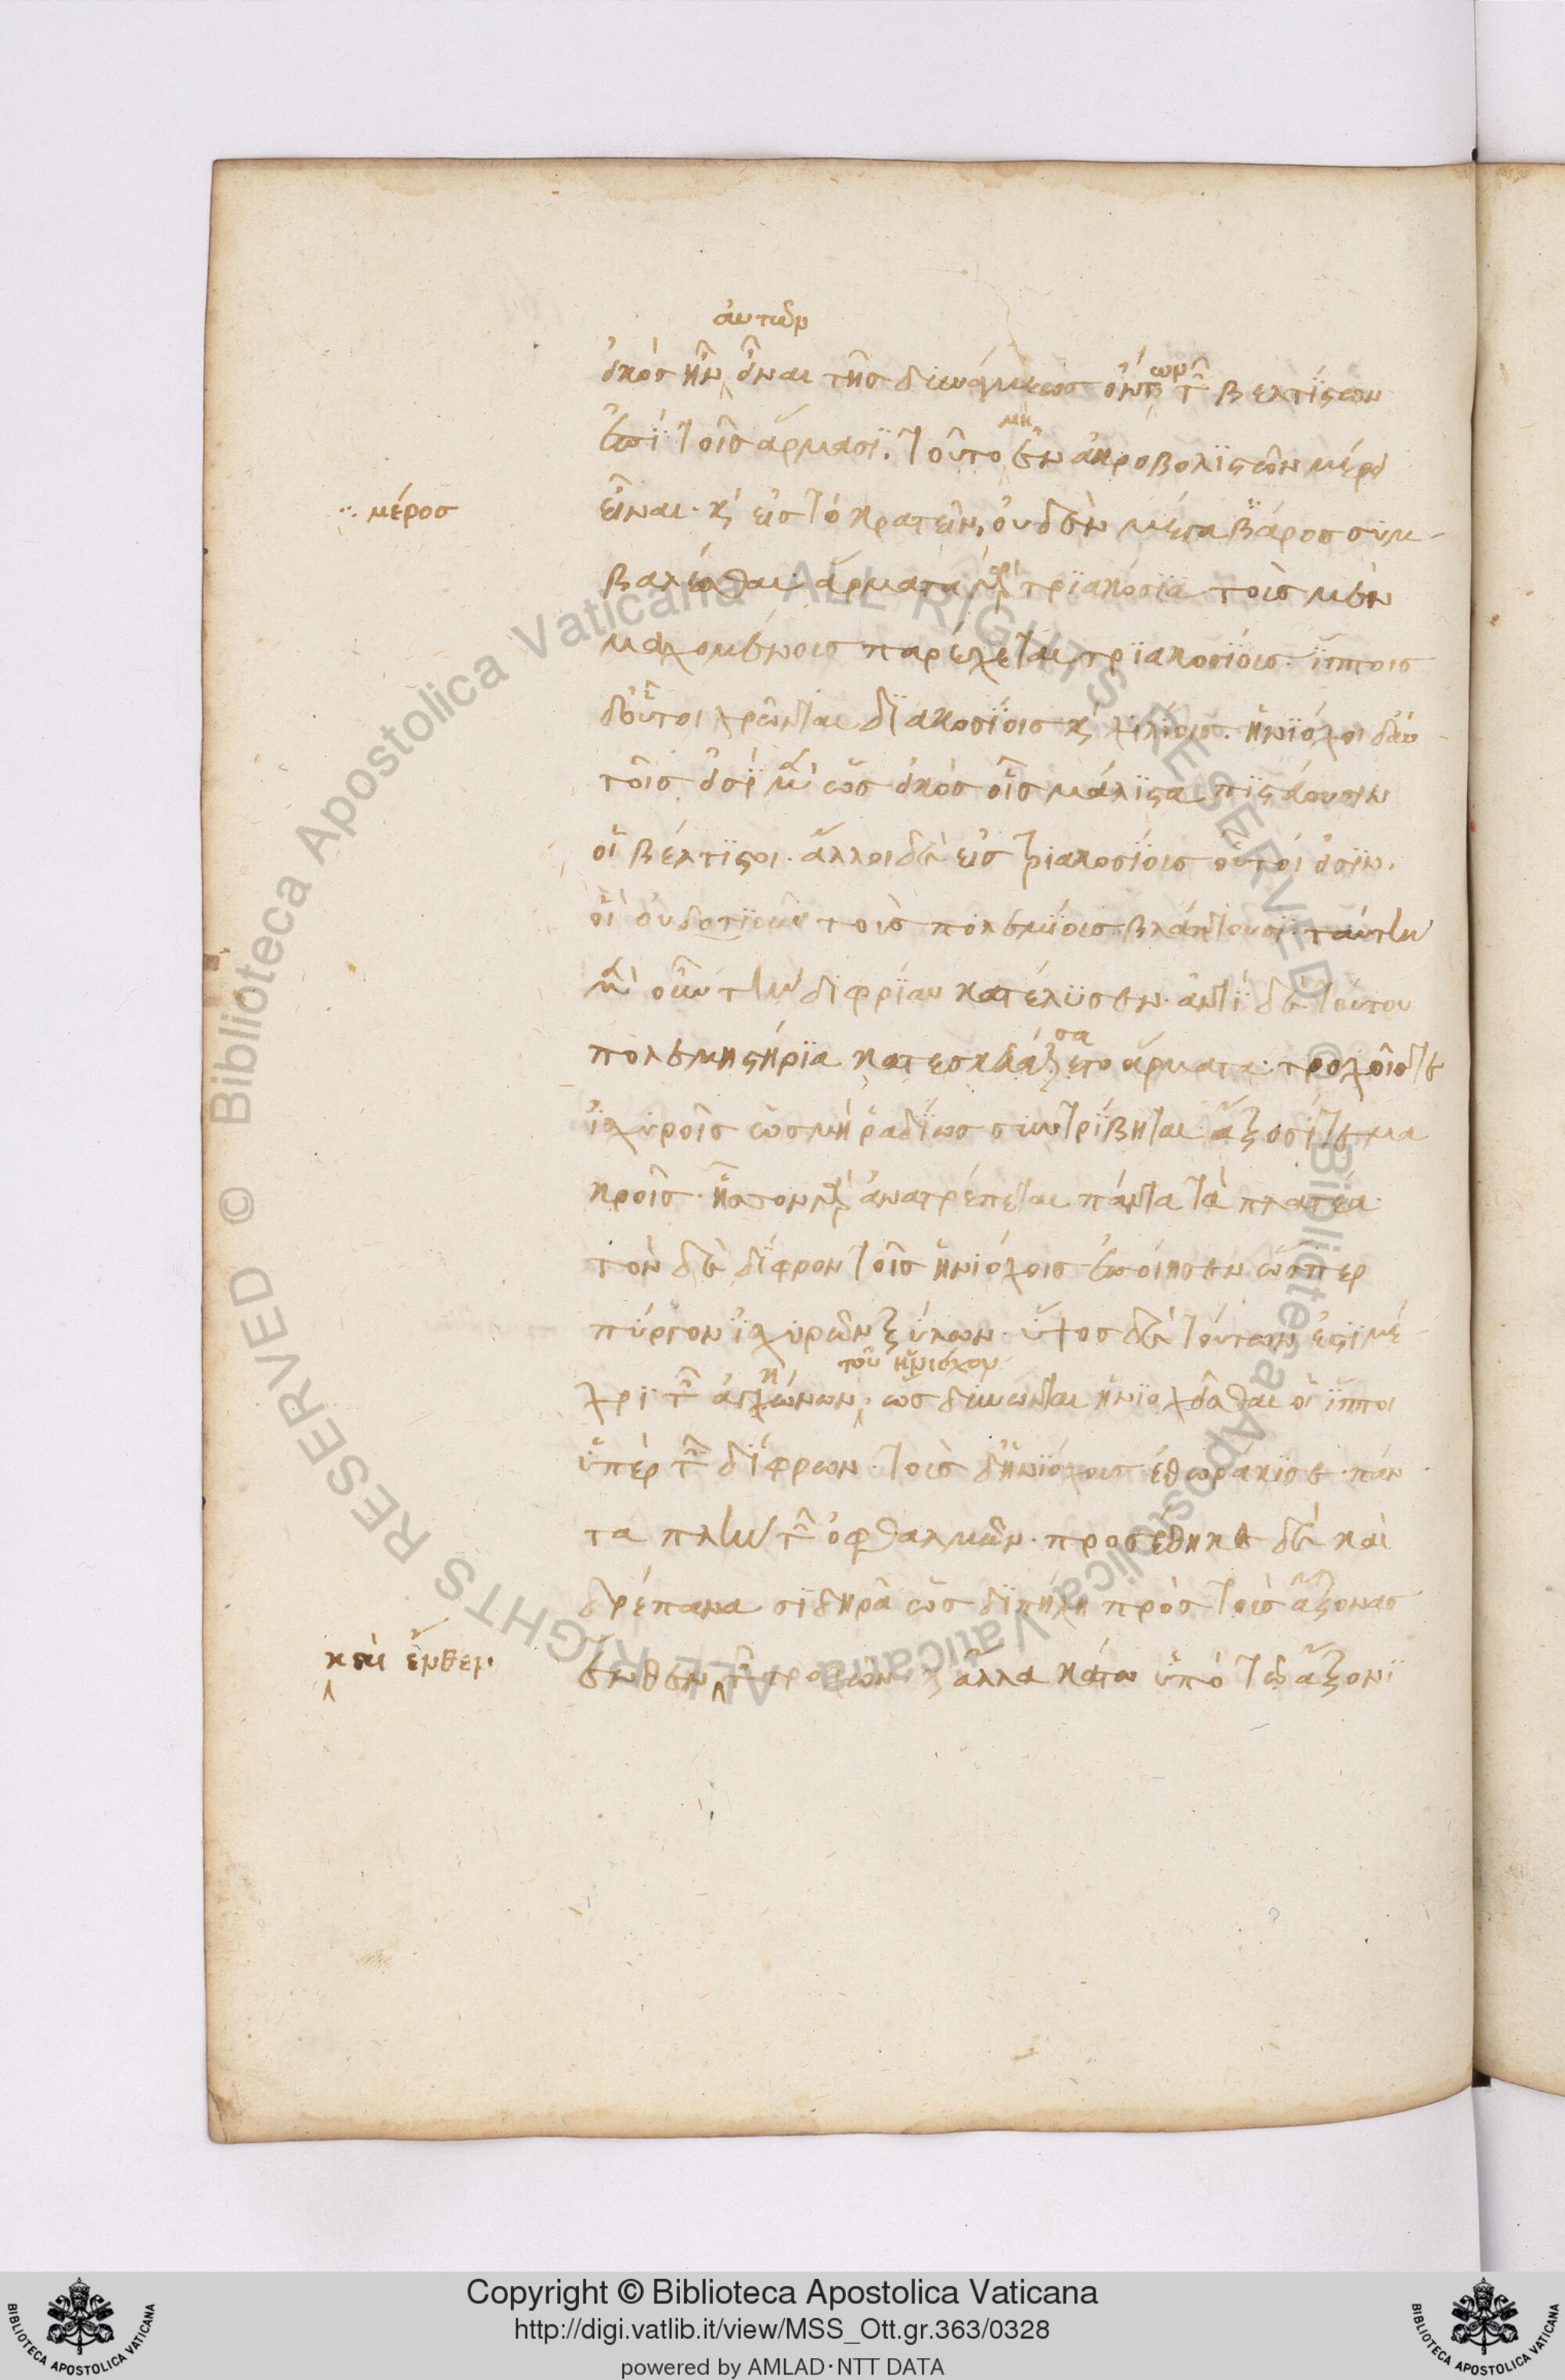 αὐτῶν
εἰκὸς ἦν εἶναι τῆς δυνάμεως ὄντων τῶν βελτίστων
ἐπὶ τοῖς ἅρμασι. τοῦτο μὴ ἐν ἀκροβολιστῶν μέρει
μέρος
εἶναι. καὶ εἰς τὸ κρατεῖν, οὐδὲν μέγα βάρος συμ-
βαλέσθαι. ἅρματα γὰρ τριακόσια τοὺς μὲν
μαχομένους παρέχεται τριακοσίους. ἵπποις
δ' οὗτοι χρῶνται διακοσίοις καὶ χιλίοις. ἡνίοχοι δ' αὐ
τοῖς εἰσὶ μὲν ὡς εἰκὸς οἷς μάλιστα πιστεύουσιν
οἱ βέλτιστοι. ἄλλοι δὲ εἰς τριακοσίους οὗτοί εἰσιν.
οἳ οὐδοτιοῦν τοὺς πολεμίους βλάπτουσι. ταύτην
μὲν οὖν τὴν διφρίαν κατέλυσεν. ἀντὶ δὲ τούτου
πολεμιστήρια κατεσκευάζετο ἅρματα. τροχοῖς τε
σα
ἰσχυροῖς ὡς μὴ ῥαδίως συντρίβηται. ἄξοσί τε μα
κροῖς. ἧττον γὰρ ἀνατρέπεται πάντα τὰ πλατέα.
τὸν δὲ δίφρον τοῖς ἡνιόχοις ἐποίησεν ὥσπερ
πύργον ἰσχυρῶν ξύλων. ὕψος δὲ τούτων ἐστὶ μέ
τοῦ ἡνιόχου
χρι τῶν ἀγκώνων. ὡς δύνωνται ἡνιοχεῖσθαι οἱ ἵπποι
ὑπὲρ τῶν δίφρων. τοὺς δ' ἡνιόχους ἐθωράκισε πάν
τα πλὴν τῶν ὀφθαλμῶν. προσέθηκε δὲ καὶ
δρέπανα σιδηρᾶ ὡς διπήχη πρὸς τοὺς ἄξονας
καὶ ἔνθεν
ἔνθεν τῶν τροχῶν. καὶ ἄλλα κάτω ὑπὸ τῷ ἄξονι
Copyright © Biblioteca Apostolica Vaticana
http://digi.vatlib.it/view/MSS_Ott.gr.363/0328
powered by AMLAD·NTT DATA
BIBLIOTECA APOSTOLICA VATICANA
BIBLIOTECA APOSTOLICA VATICANA
Biblioteca Apostolica Vaticana ALL RIGHTS RESERVED ©
Biblioteca Apostolica Vaticana ALL RIGHTS RESERVED ©